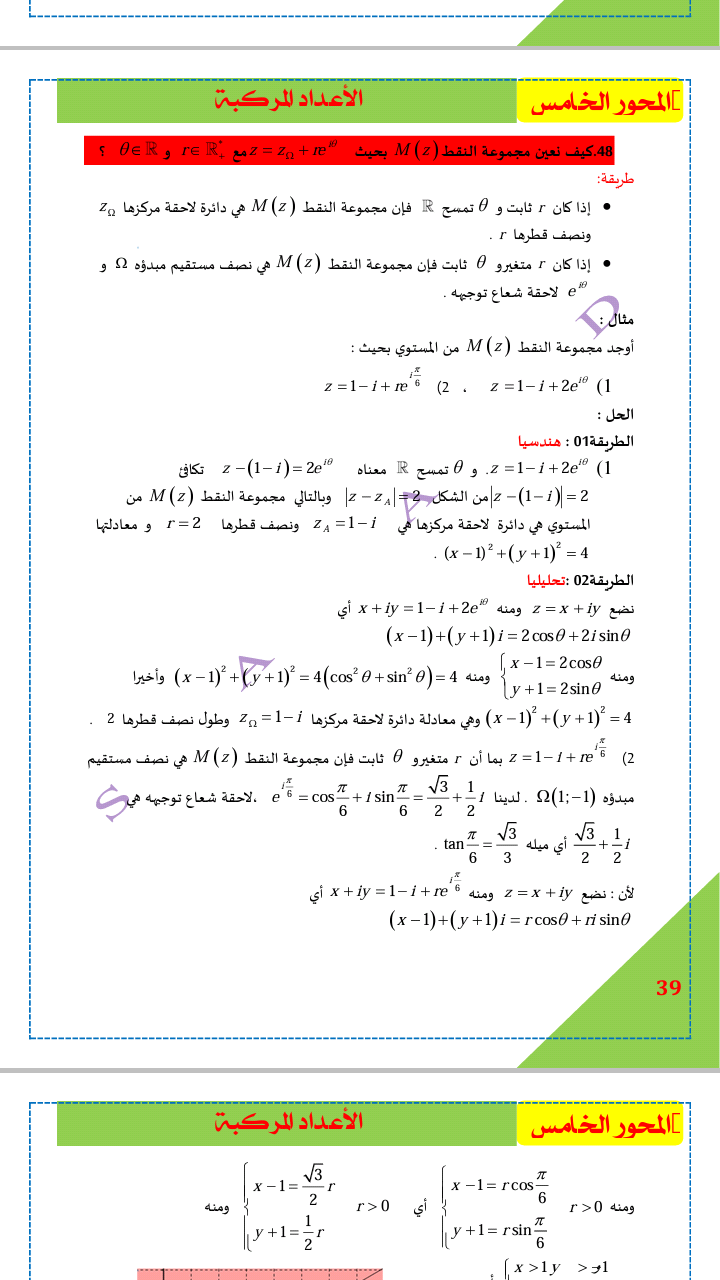 المحور الخامس [
الأعداد المركبة
48.كيف نعين مجموعة النقط M(z) بحيث z = z_Ω + re^{iθ} مع r ∈ ℝ*₊ و θ ∈ ℝ ؟
طريقة:
• إذا كان r ثابت و θ تمسح ℝ فإن مجموعة النقط M(z) هي دائرة لاحقة مركزها z_Ω
ونصف قطرها r .
• إذا كان r متغيرو θ ثابت فإن مجموعة النقط M(z) هي نصف مستقيم مبدؤه Ω و
e^{iθ} لاحقة شعاع توجيهه .
مثال :
أوجد مجموعة النقط M(z) من المستوي بحيث :
1) z = 1 − i + 2e^{iθ} ، 2) z = 1 − i + re^{iπ/6}
الحل :
الطريقة01 : هندسيا
1) z = 1 − i + 2e^{iθ} . و θ تمسح ℝ معناه z − (1 − i) = 2e^{iθ} تكافئ
|z − (1 − i)| = 2 من الشكل |z − z_A| = 2 وبالتالي مجموعة النقط M(z) من
المستوي هي دائرة لاحقة مركزها هي z_A = 1 − i ونصف قطرها r = 2 و معادلتها
(x − 1)² + (y + 1)² = 4 .
الطريقة02 :تحليليا
نضع z = x + iy ومنه x + iy = 1 − i + 2e^{iθ} أي
(x − 1) + (y + 1)i = 2 cosθ + 2i sinθ
ومنه { x − 1 = 2cosθ ; y + 1 = 2sinθ ومنه (x − 1)² + (y + 1)² = 4(cos²θ + sin²θ) = 4 وأخيرا
(x − 1)² + (y + 1)² = 4 وهي معادلة دائرة لاحقة مركزها z_Ω = 1 − i وطول نصف قطرها 2 .
2) z = 1 − i + re^{iπ/6} بما أن r متغيرو θ ثابت فإن مجموعة النقط M(z) هي نصف مستقيم
مبدؤه Ω(1;−1) . لدينا e^{iπ/6} = cos π/6 + i sin π/6 = √3/2 + 1/2 i ،لاحقة شعاع توجيهه هي
√3/2 + 1/2 i أي ميله tan π/6 = √3/3 .
لأن : نضع z = x + iy ومنه x + iy = 1 − i + re^{iπ/6} أي
(x − 1) + (y + 1)i = r cosθ + ri sinθ
39
S A A D
المحور الخامس [
الأعداد المركبة
ومنه { x − 1 = r cos π/6 ; y + 1 = r sin π/6 r > 0 أي { x − 1 = √3/2 r ; y + 1 = 1/2 r r > 0 ومنه